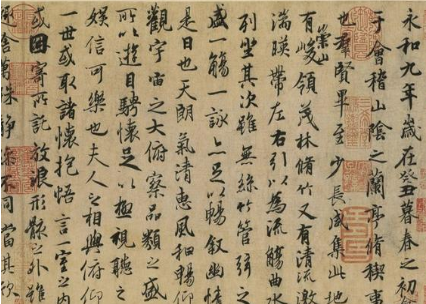 永和九年歲在癸丑暮春之初
于會稽山陰之蘭亭脩稧事
也羣賢畢至少長咸集此地
有崇山峻領茂林脩竹又有清流激
湍暎帶左右引以為流觴曲水
列坐其次雖無絲竹管弦之
盛一觴一詠亦足以暢叙幽情
是日也天朗氣清惠風和暢仰
觀宇宙之大俯察品類之盛
所以遊目騁懷足以極視聽之
娛信可樂也夫人之相與俯仰
一世或取諸懷抱悟言一室之內
或因寄所託放浪形骸之外雖
舍萬殊静躁不同當其欣